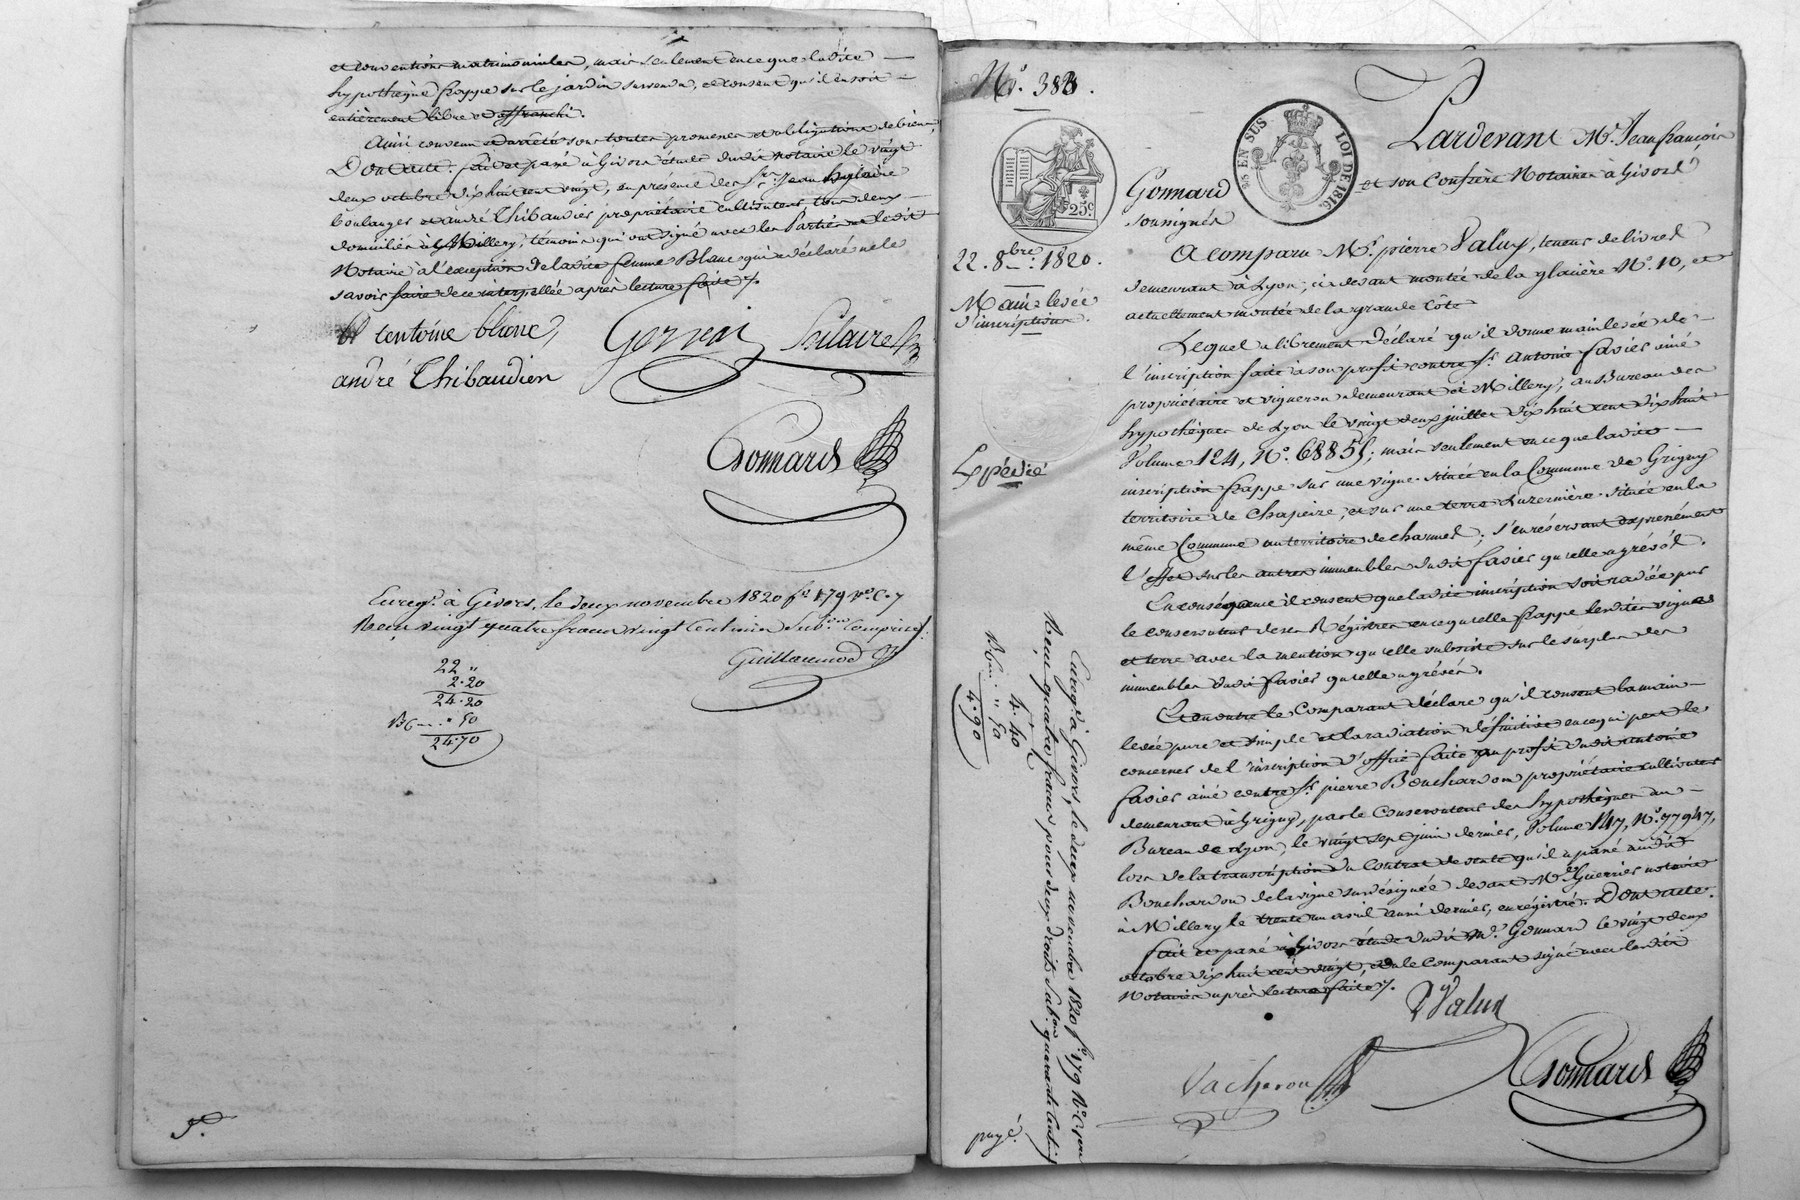 et conventions matrimoniales, mais seulement en ce que ladite
hypothèque frappe sur le jardin survendu, et consent qu'il en soit
entièrement libre et affranchi.
Ainsi convenu et arrêté sous toutes promesses et obligations de biens,
Dont acte. fait et passé à Givors étude dudit notaire le vingt
deux octobre dix huit cent vingt, en présence des Srs. Jean hylaire
boulanger et andré Thibaudier propriétaire cultivateur, tous deux
domiciliés à Millery, témoins qui ont signé avec les Parties et ledit
Notaire à l'exception de ladite femme Blanc qui a déclaré ne le
savoir faire de ce interpellée après lecture faite ./.
blanc,
andré Thibaudier
hilaire
Gonnard
Enregé. à Givors, le deux novembre 1820 fo 179 vo C. 7
Reçu vingt quatre francs vingt centimes subon comprise.
Guillaumod
22 "
2.20
24.20
" 50
24.70
No. 383.
25 c
22. 8bre. 1820.
Main-levée
d'inscription.
Expédié
EN SUS
LOI DE 1816
Pardevant Me. Jean françois
Gonnard et son Confrère Notaires à Givors
soussignés
A comparu Mr. pierre Valuy, teneur de livres
demeurant à Lyon, ci devant montée de la glacière No. 10, et
actuellement montée de la grande Côte
Lequel a librement déclaré qu'il donne mainlevée de
l'inscription faite à son profit contre Sr. Antoine favier ainé
propriétaire et vigneron demeurant à Millery, au Bureau des
hypothèques de Lyon le vingt deux juillet dix huit cent dix huit
Volume 124, No. 68855; mais seulement en ce que ladite
inscription frappe sur une vigne située en la Commune de Grigny
territoire de Chapeire, et sur une terre Luzernière située en la
même Commune au territoire de charmes; s'en réservant expressément
l'effet sur les autres immeubles dudit favier qu'elle a grévés.
En conséquence il consent que ladite inscription soit radiée par
le conservateur de ses Régistres en ce qu'elle frappe lesdites vigne
et terre avec la mention qu'elle subsiste sur le surplus des
immeubles dudit favier qu'elle a grévés.
Et en outre le Comparant déclare qu'il consent la main
levée pure et simple et la radiation définitive en ce qui peut le
concerner de l'inscription d'office faite au profit dudit antoine
favier ainé contre Sr. pierre Bouchardon propriétaire cultivateur
demeurant à Grigny, par le Conservateur des hypothèques au
Bureau de Lyon, le vingt sept juin dernier, Volume 147, No. 77947,
lors de la transcription du contrat de vente qu'il a passé audit
Bouchardon de la vigne susdésignée devant Me Guerrier notaire
à Millery le trente un avril aussi dernier, enrégistré. Dont acte.
fait et passé à Givors étude dudit Me. Gonnard le vingt deux
octobre dix huit cent vingt, et le comparant signé avec lesdits
Notaires après lecture faite ./.
Valuy
Vacheron
Gonnard
Enregé. à Givors, le deux novembre 1820 fo. 179
Reçu quatre francs pour deux droits Subon. quarante centimes
4.40
" 50
4.90
payé.